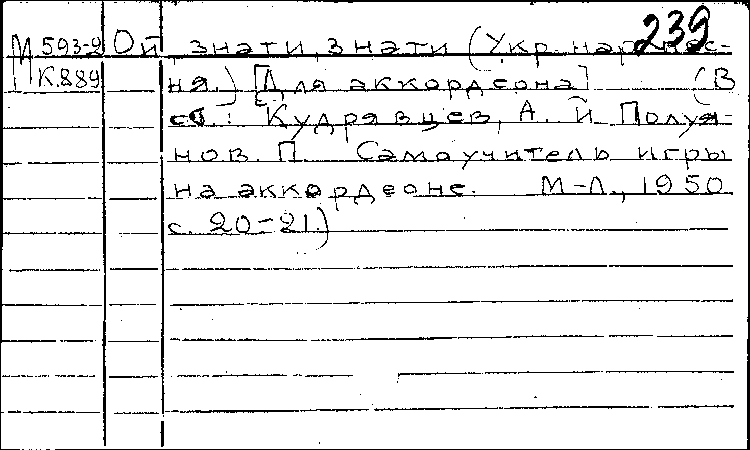 239
М 593-2
К.889
Ой, знати, знати (Укр. нар. пес-
ня.) [Для аккордеона] (В
сб.: Кудрявцев, А. и Полуя-
нов. П. Самоучитель игры
на аккордеоне. М-Л., 1950
с. 20-21.)